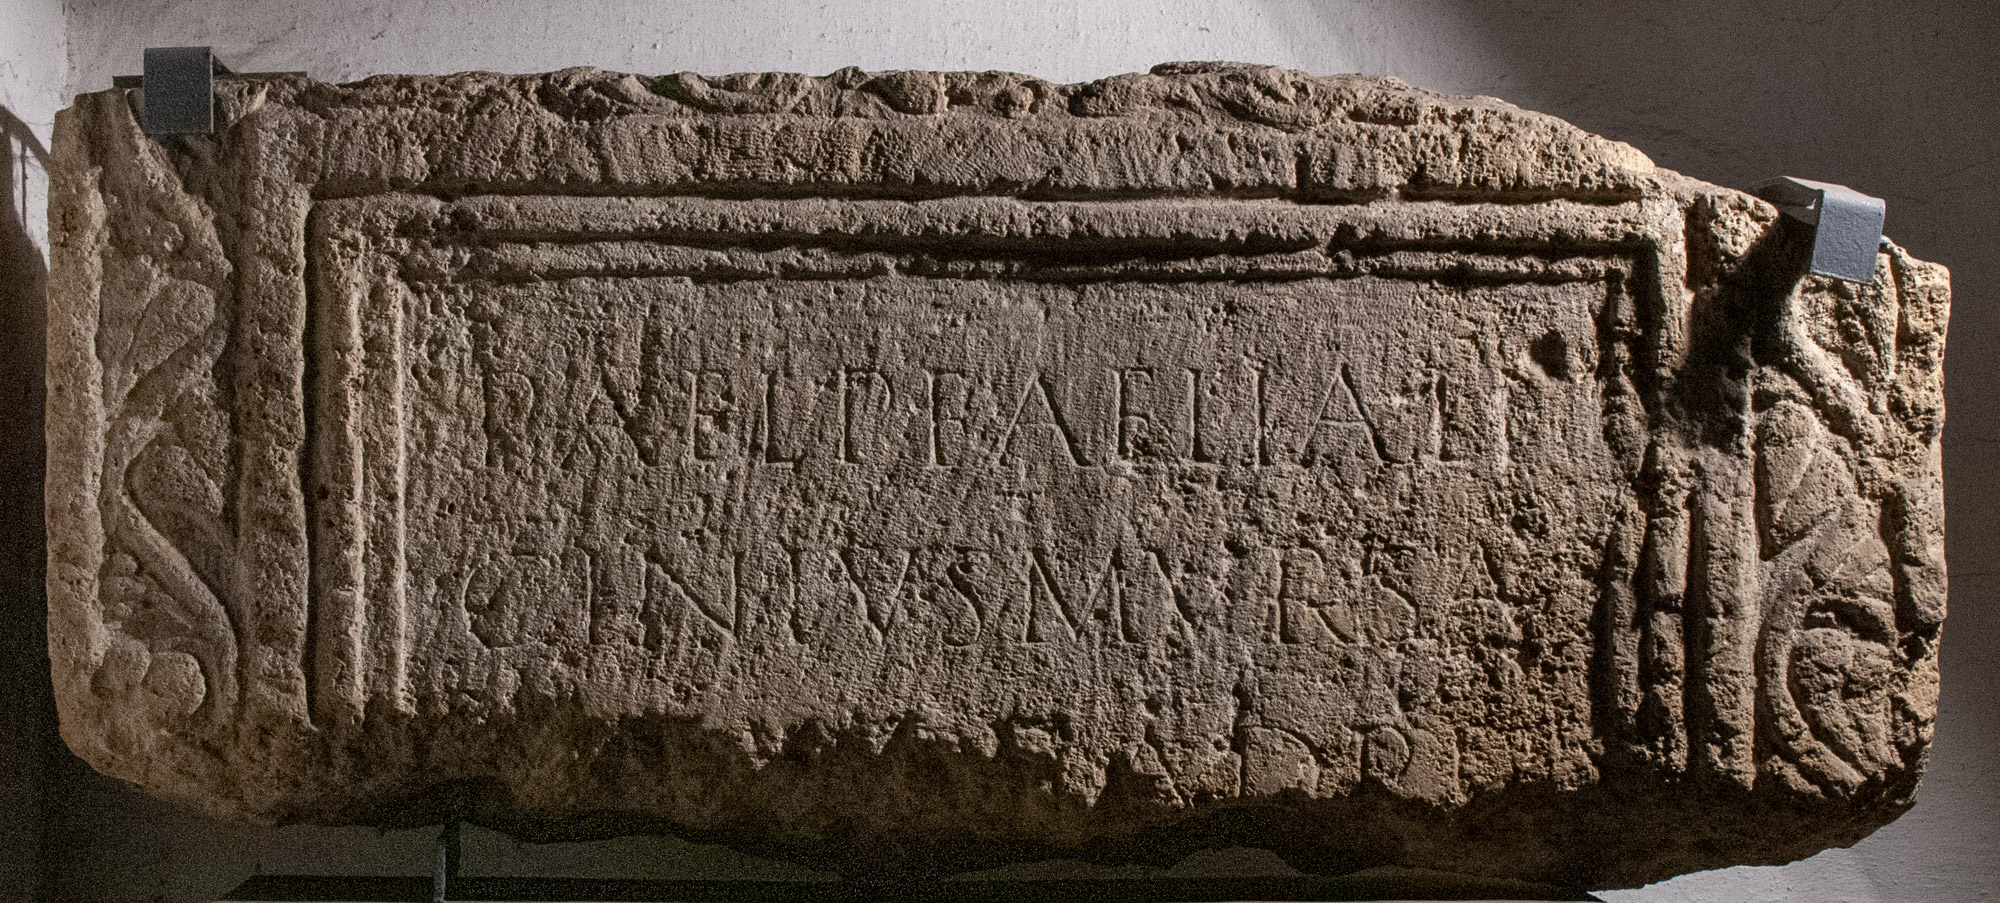 P AEL P F AELIA LI
CINIVS MVRSA